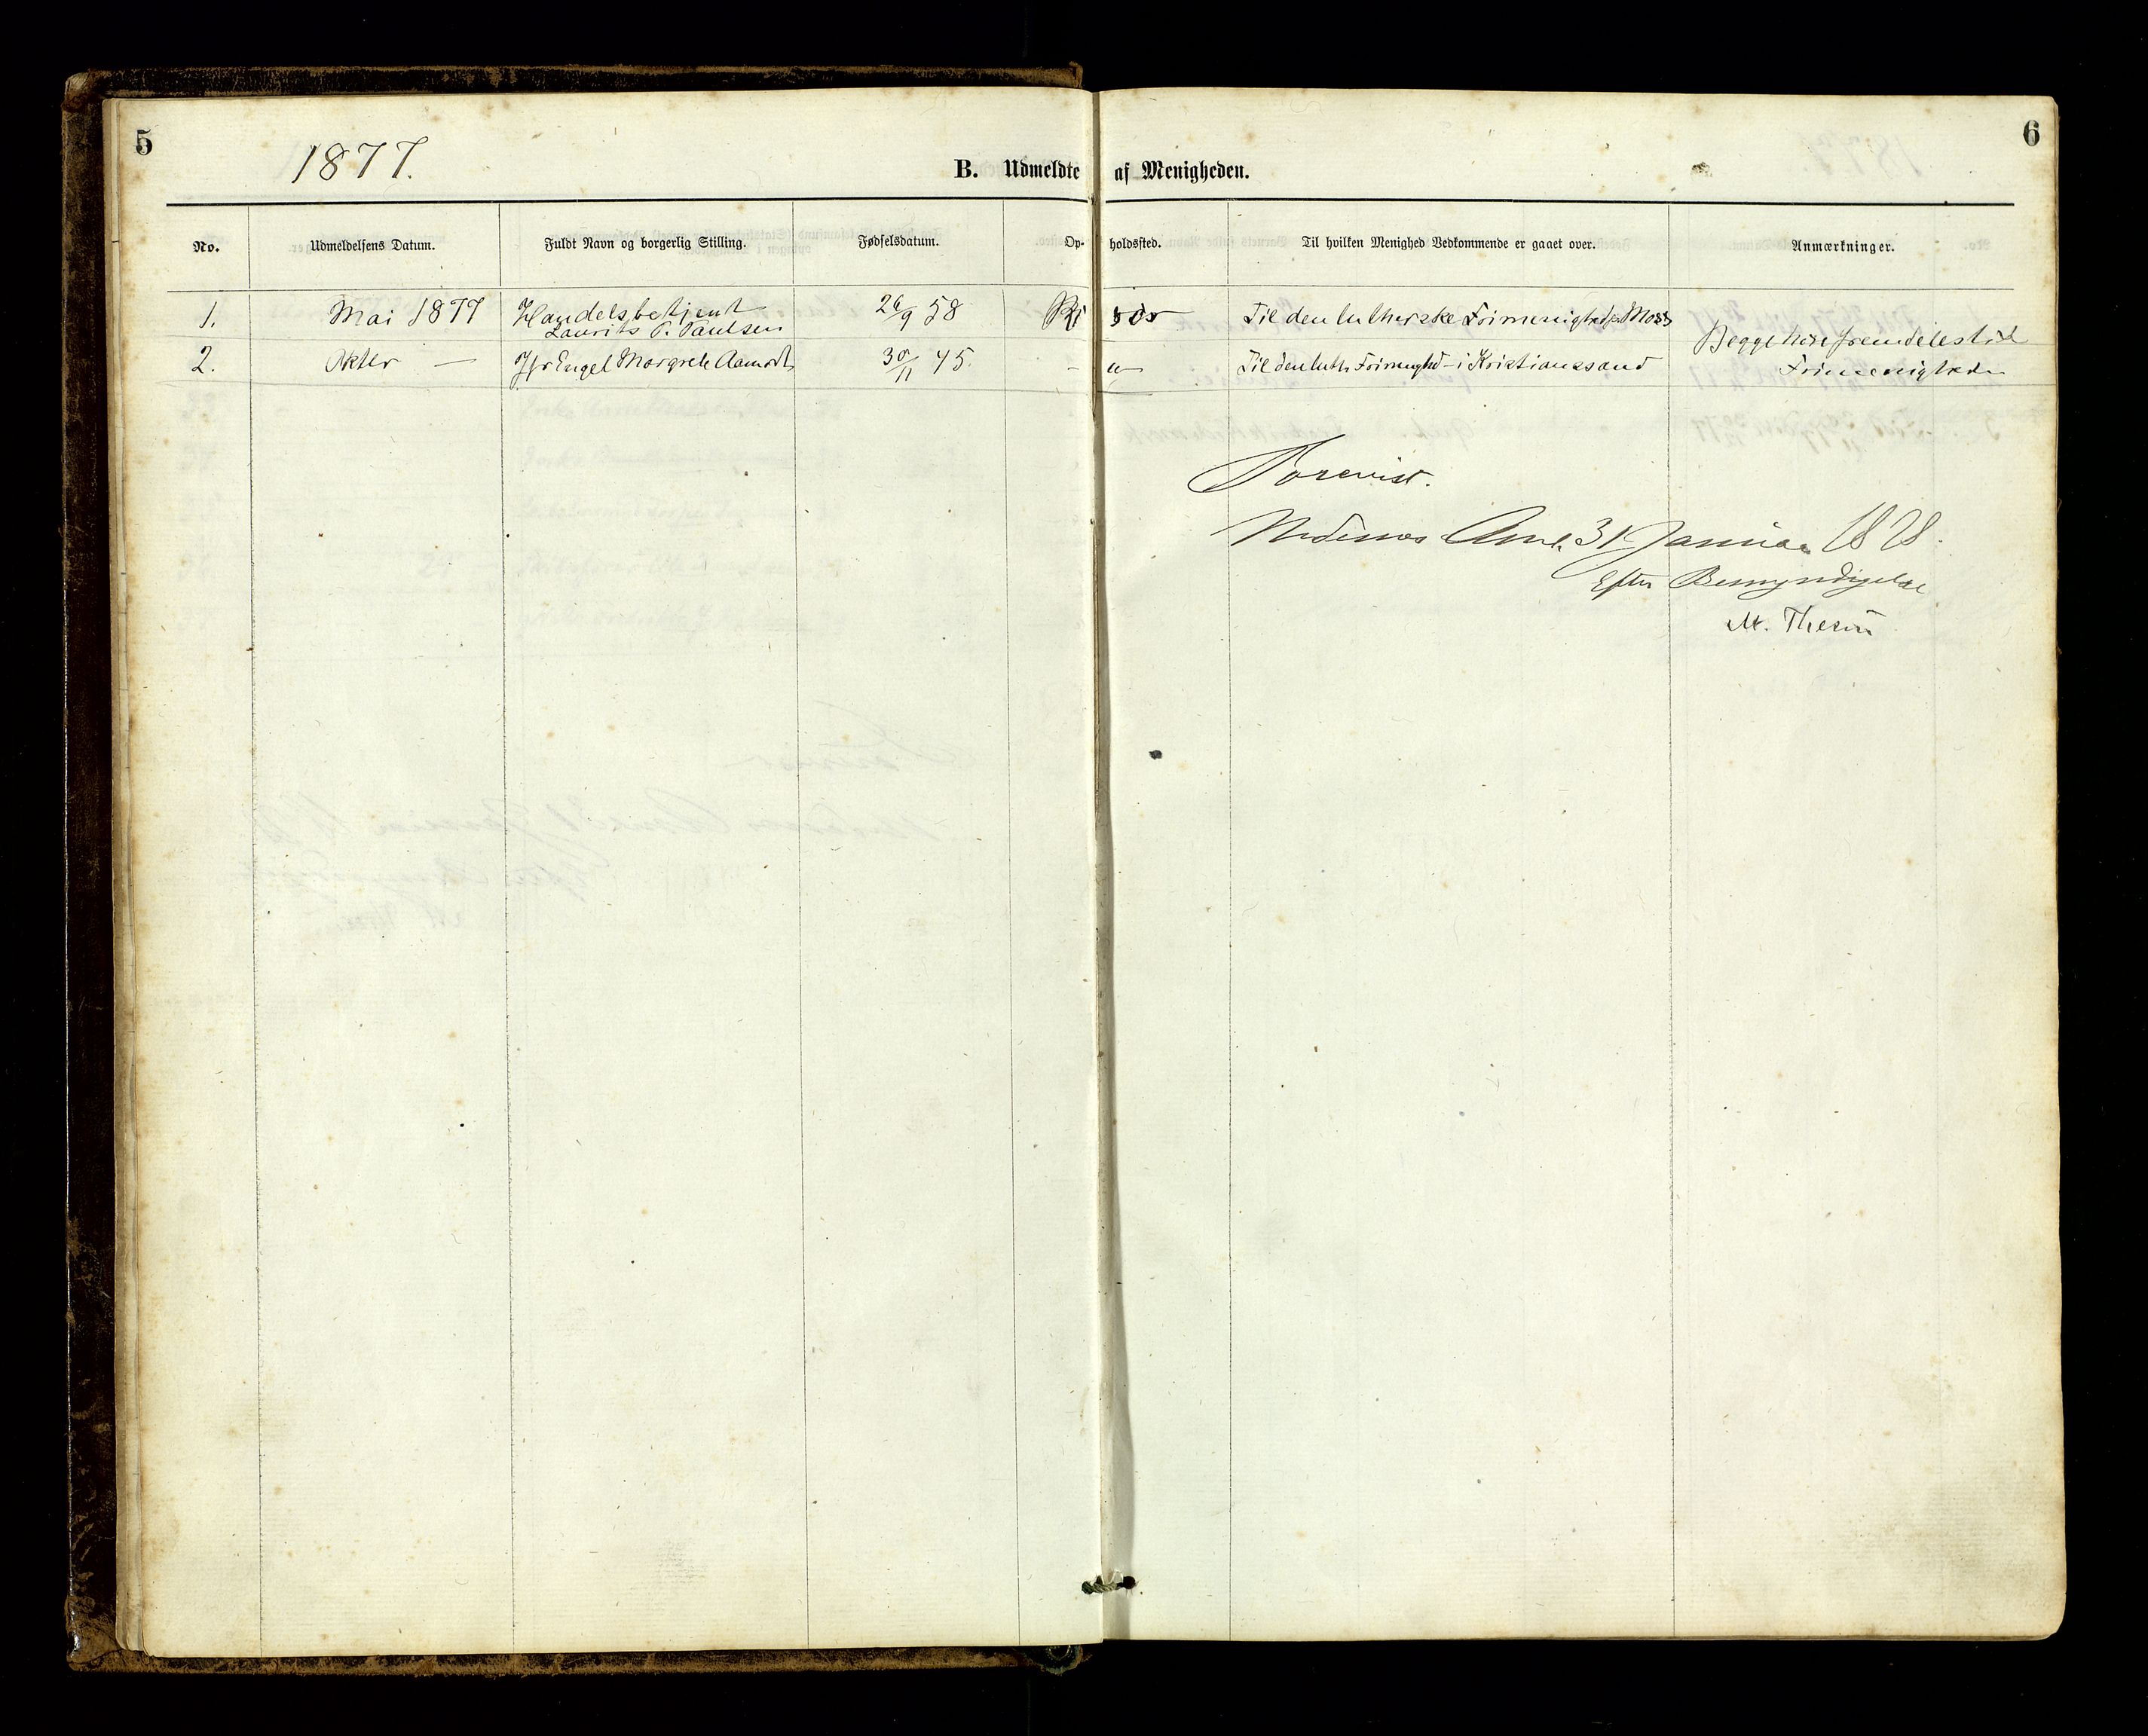 5
6
1877.
B. Udmeldte af Menigheden.
No. Udmeldelsens Datum. Fuldt Navn og borgerlig Stilling. Fødselsdatum. Opholdssted. Til hvilken Menighed Vedkommende er gaaet over. Anmærkninger.
1. Mai 1877 Handelsbetjent 26/9 58 Risør Til den lutherske Frimenighed paa Moss
Laurits P. Paulsen
Begge høre fremdeles til
2. Oktbr — Jfr Engel Margrete Aamodt 30/11 45. - " - Til den luth. Frimenghd - i Kristianssand Frimenigheden
Forevist.
Nedenes Amt. 31 Januar 1878.
Efter Bemyndigelse
M.